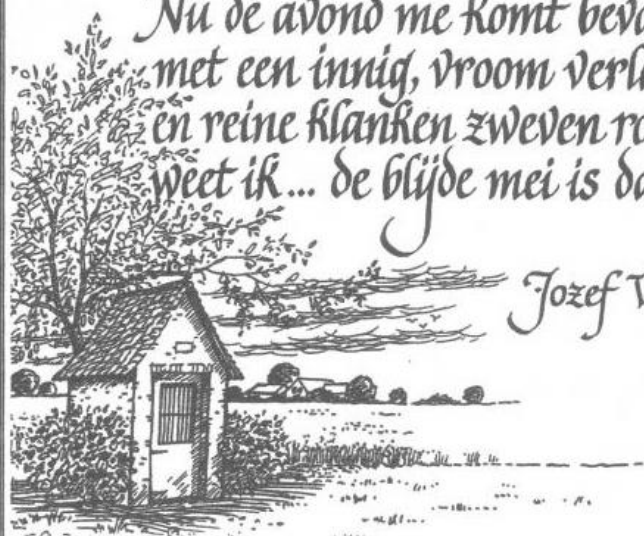 Nu de avond me komt beva
met een innig, vroom verla
en reine klanken zweven ro
weet ik... de blijde mei is da
Jozef V